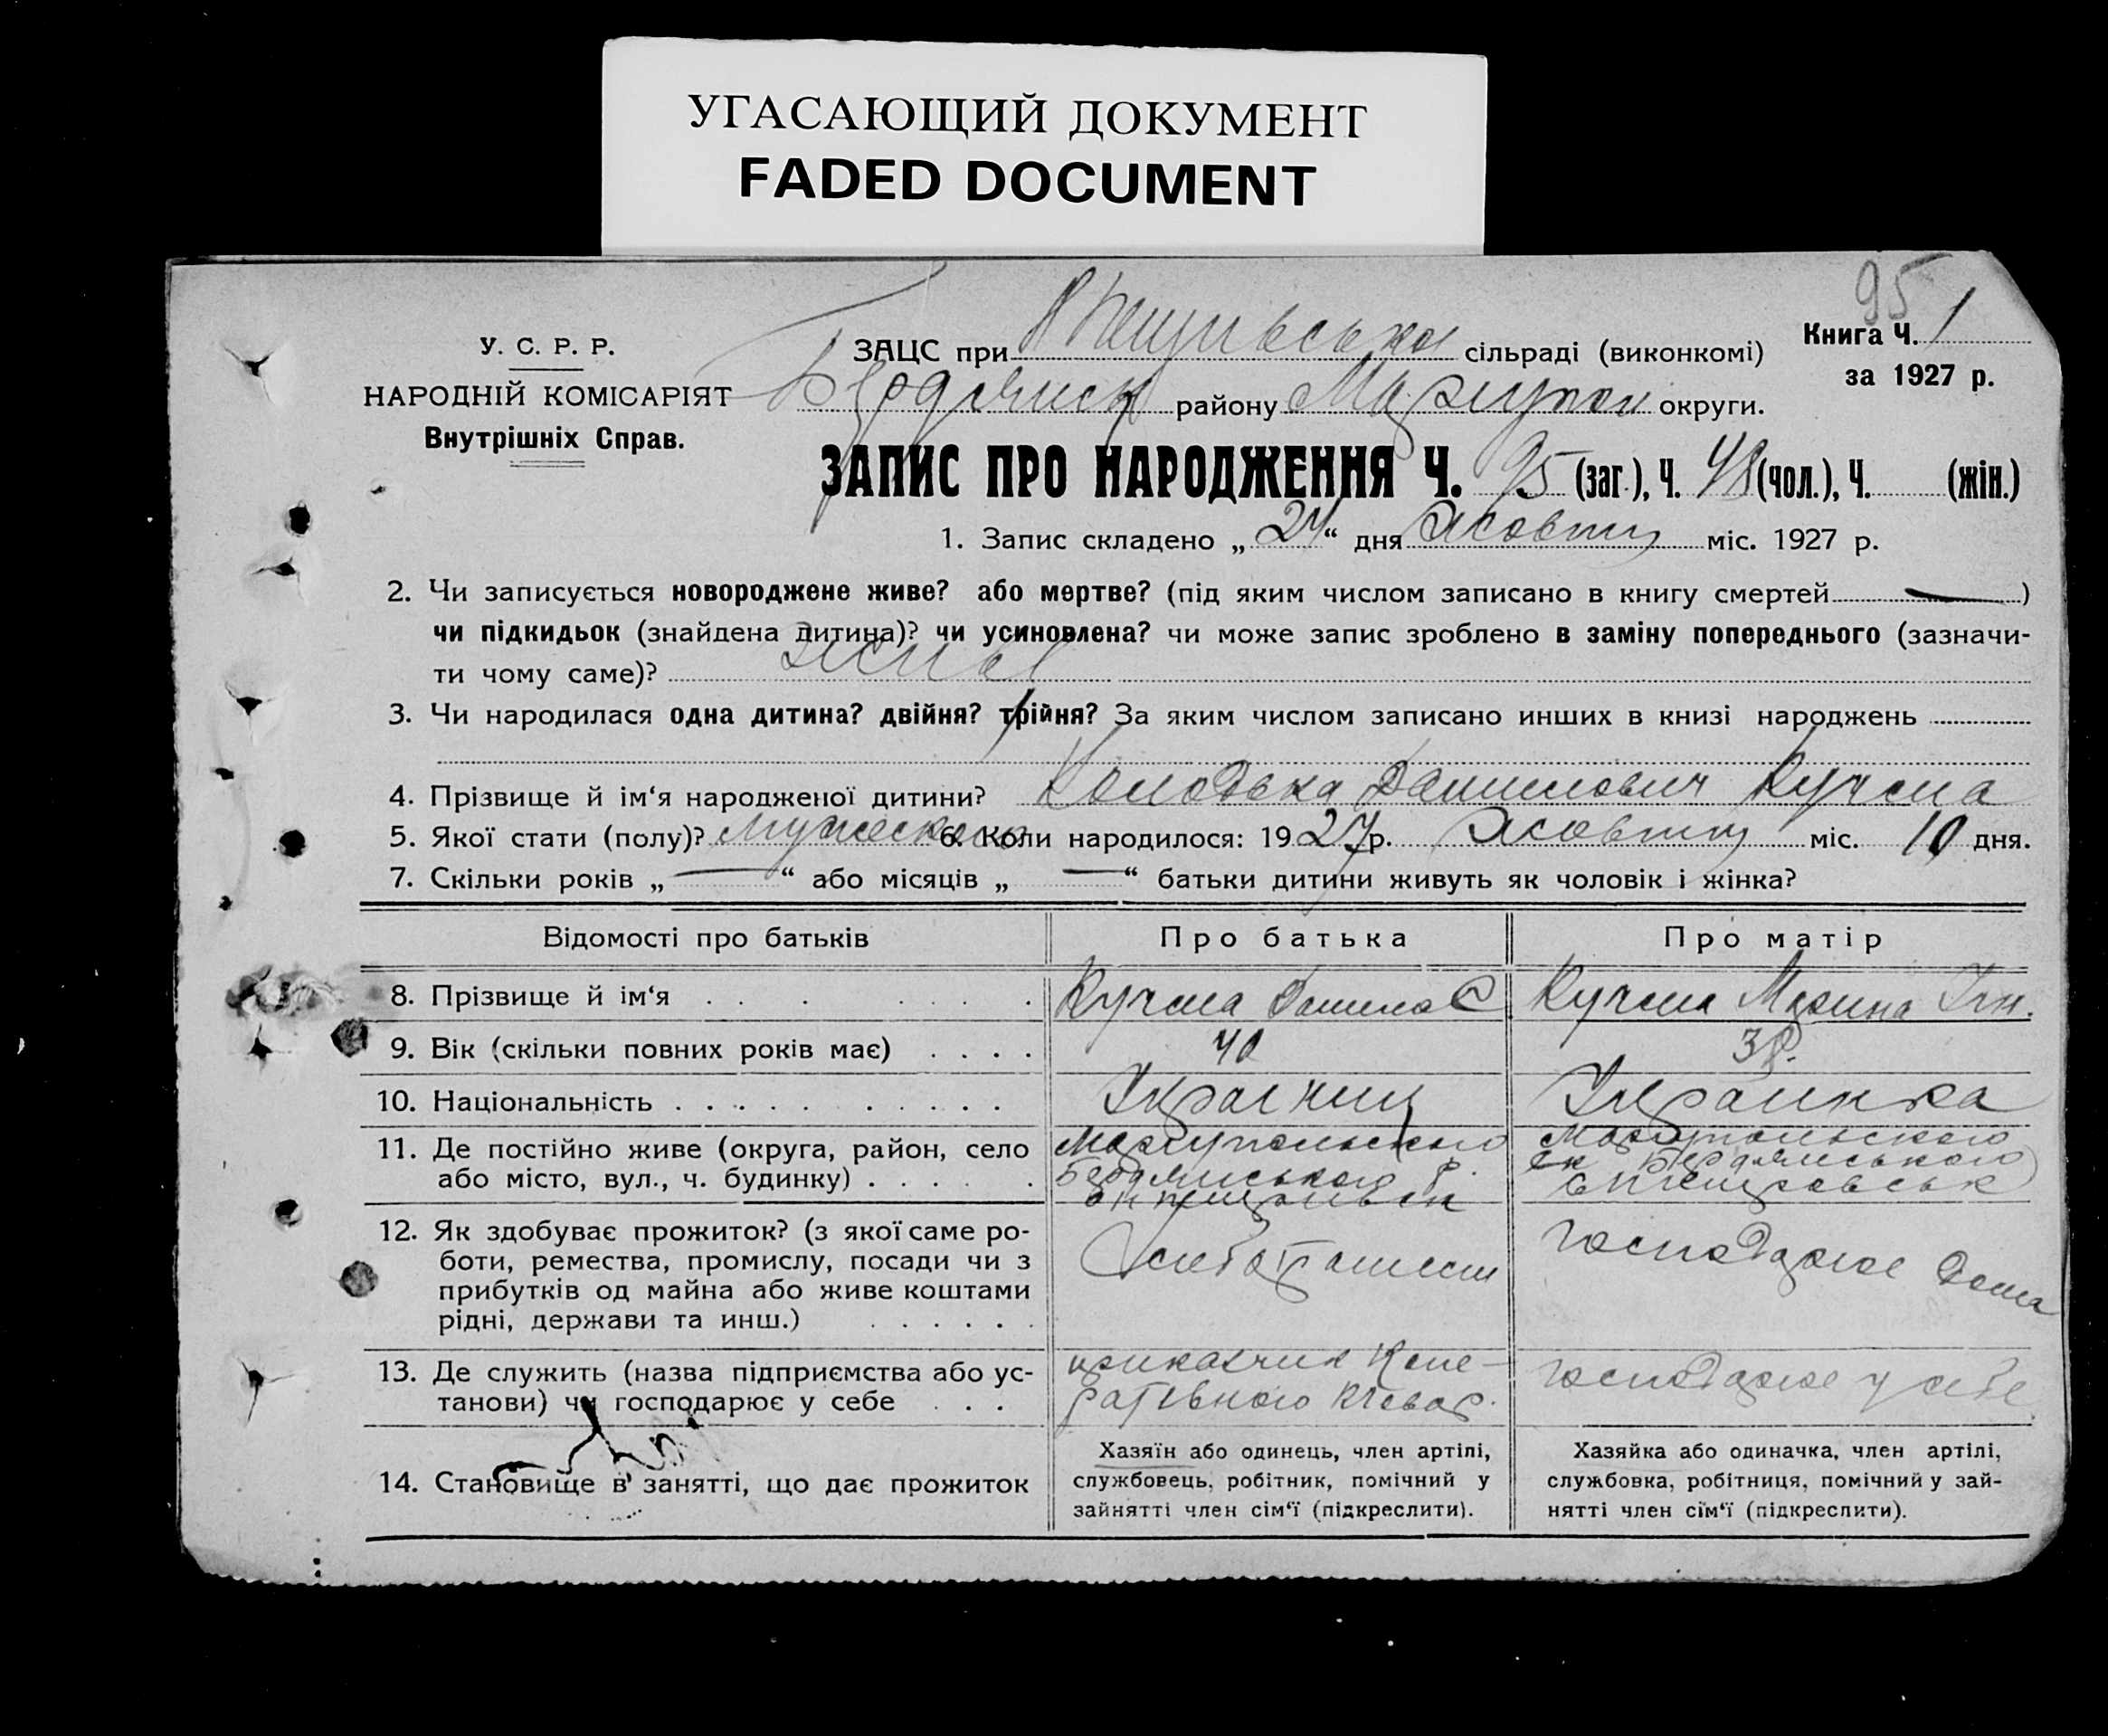 УГАСАЮЩИЙ ДОКУМЕНТ
FADED DOCUMENT
95
У. С. Р. Р.
НАРОДНІЙ КОМІСАРІЯТ
Внутрішніх Справ.
ЗАЦС при сільраді (виконкомі)
Книга Ч. 1
за 1927 р.
Бердянськ району Маріупол округи.
ЗАПИС ПРО НАРОДЖЕННЯ Ч. 95 (заг.), Ч. 48 (чол.), Ч. (жін.)
1. Запис складено „ 24 “ дня Жовтня міс. 1927 р.
2. Чи записується новороджене живе? або мертве? (під яким числом записано в книгу смертей — )
чи підкидьок (знайдена дитина)? чи усиновлена? чи може запис зроблено в заміну попереднього (зазначи-
ти чому саме)? живе
3. Чи народилася одна дитина? двійня? трійня? За яким числом записано инших в книзі народжень
4. Прізвище й ім‘я народженої дитини? Данилович Кучма
5. Якої стати (полу)? мужеского 6. Коли народилося: 1927 р. Жовтня міс. 10 дня.
7. Скільки років „ — “ або місяців „ — “ батьки дитини живуть як чоловік і жінка?
Відомості про батьків Про батька Про матір
8. Прізвище й ім‘я Кучма Данило С Кучма Марина
9. Вік (скільки повних років має) 40 38.
10. Національність Українец Украинка
11. Де постійно живе (округа, район, село Мариупольского Мариупольского
або місто, вул., ч. будинку) Бердянського р. ок Бердянського
12. Як здобуває прожиток? (з якої саме ро-
боти, ремества, промислу, посади чи з
прибутків од майна або живе коштами
рідні, держави та инш.) господарює дома
13. Де служить (назва підприємства або ус- приказчик Копе-
танови) чи господарює у себе ративного господарює у себе
14. Становище в занятті, що дає прожиток
Хазяїн або одинець, член артілі,
службовець, робітник, помічний у
зайнятті член сім‘ї (підкреслити).
Хазяйка або одиначка, член артілі,
службовка, робітниця, помічний у зай-
нятті член сім‘ї (підкреслити).